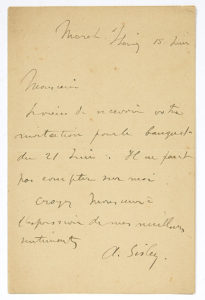 Moret s/Loing 15 Juin
Monsieur
Je viens de recevoir votre
invitation pour le banquet
du 21 Juin. Il ne faut
pas compter sur moi
croyez Monsieur à
l'expression de mes meilleurs
sentiments
A. Sisley.